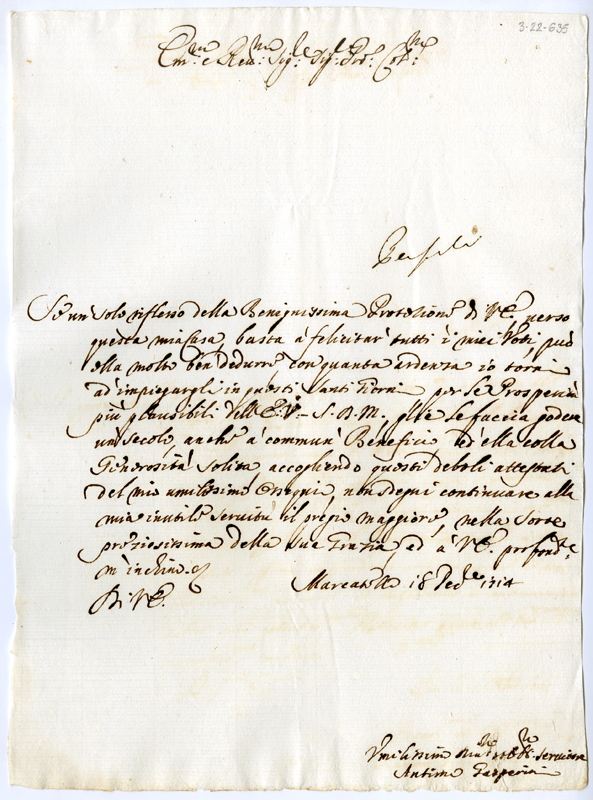 3-22-635
Em.mo e Rev.mo Sig.r Sig.r Pro.n Col.mo
Se un solo riflesso della Benignissima Protezione di V.E. verso
questa mia Casa, basta à felicitar' tutti i miei Voti, può
ella molto ben dedurre con quanta ardenza io torni
ad impiegargli in questi Santi Giorni per le Prosperità
più plausibili dell'E.V. S.D.M. glie le faccia godere
un secolo, anche à commun' Beneficio ed ella colla
Generosità solita accogliendo questi deboli attestati
del mio umilissimo Ossequio, non sdegni continuare alla
mia inutile servitù il pregio maggiore, nella sorte
preziosissima della sua Grazia, ed à V.E. profond.te
m'inchino.
Di V.E.
Mercatello 18 Dec.e 1714
Umilissimo Obb.mo Servitore
Antimo Gasperini